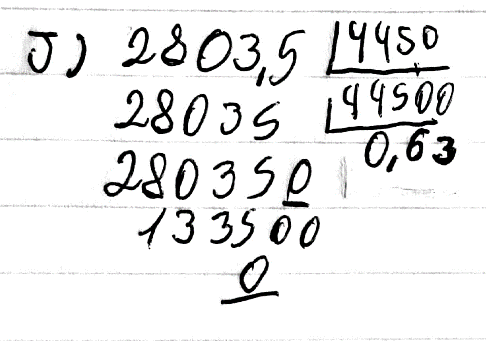 J) 2803,5 4450
28035 44500
0,63
280350
133500
0